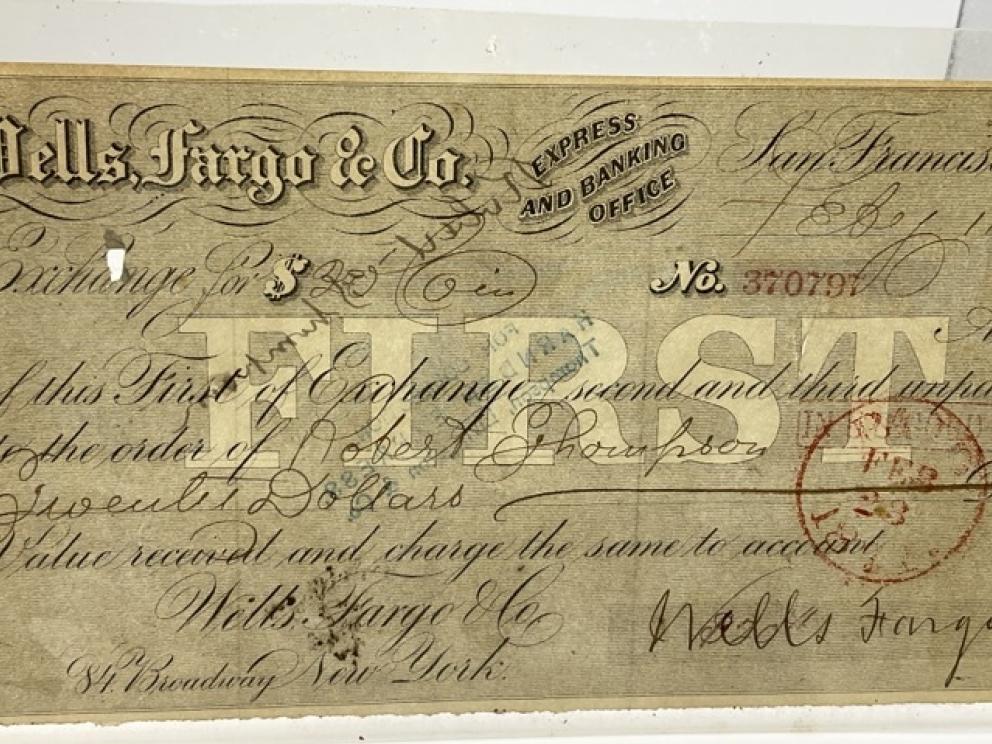 Wells, Fargo & Co. EXPRESS AND BANKING OFFICE San Francis
Feb 1
Exchange for $ 20 Coin No. 370797
FIRST
of this First of Exchange second and third unpa
to the order of Robert Thompson
Twenty Dollars
FEB
23
Value received and charge the same to account
Wells, Fargo & Co
84 Broadway New York.
Wells Fargo